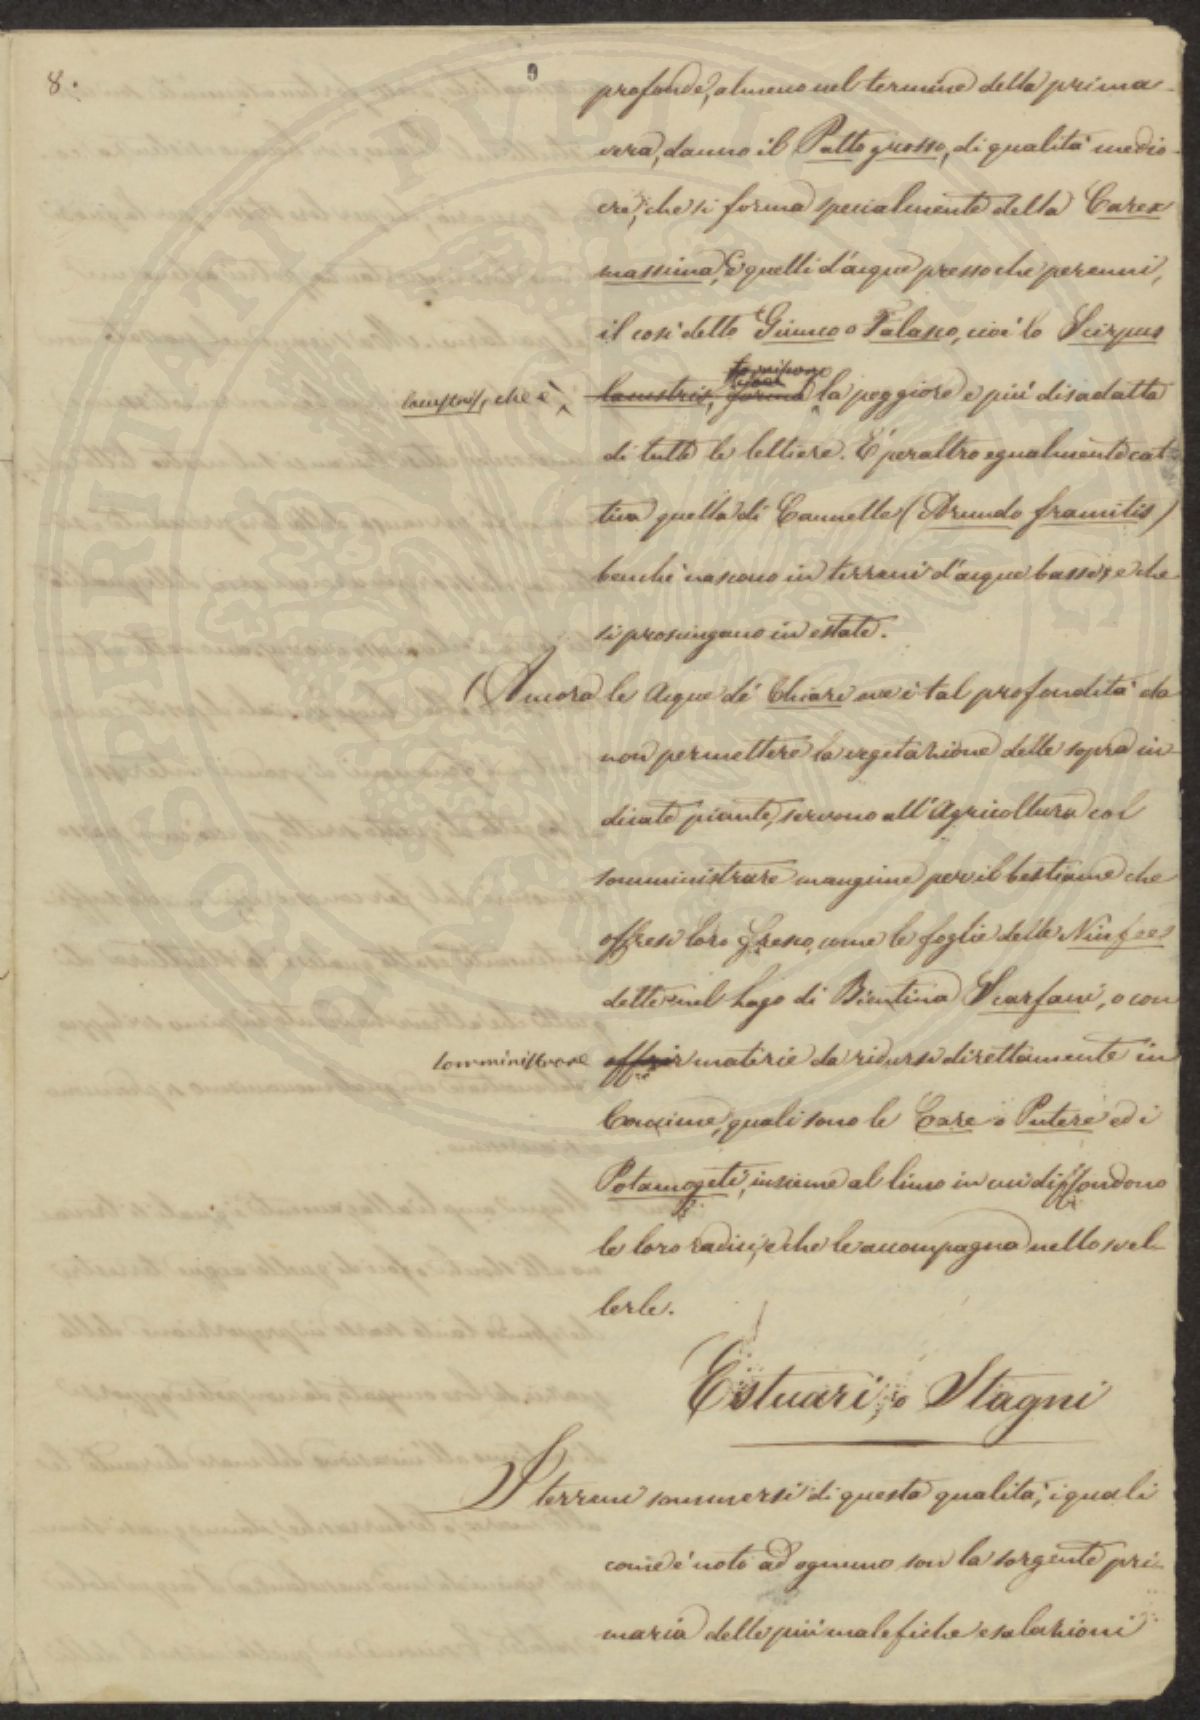 8.
9
profonde, almeno nel termine della prima-
vera, danno il Patto grosso, di qualità medio-
cre, che si forma specialmente della Carex
massima, e quelli d'acque pressoche perenni,
il così detto Giunco o Falasco, cioè lo Scirpus
lacustris, che è lacustris, forma la peggiore e più disadatta
di tutte le lettiere. È peraltro egualmente cat-
tiva quella di Cannelle (Arundo framitis)
benchè nascono in terreni d'acque basse, e che
si prosciugano in estate.
(Ancora le Acque de' Chiari ove è tal profondità da
non permettere la vegetazione delle sopra in-
dicate piante, servono all'Agricoltura col
somministrare mangime per il bestiame che
offresi loro fresco, come le foglie delle Ninfee
dette nel Lago di Bientina Scarfani, o con
somministrare offrir materie da ridursi direttamente in
Concime, quali sono le Care o Putere ed i
Potamogeti, insieme al limo in cui diffondono
le loro radici, e che le accompagna nello svel-
lerle.
Estuari, o Stagni
I terreni sommersi di questa qualità, i quali
come è noto ad ognuno son la sorgente pri-
maria delle più malefiche esalazioni